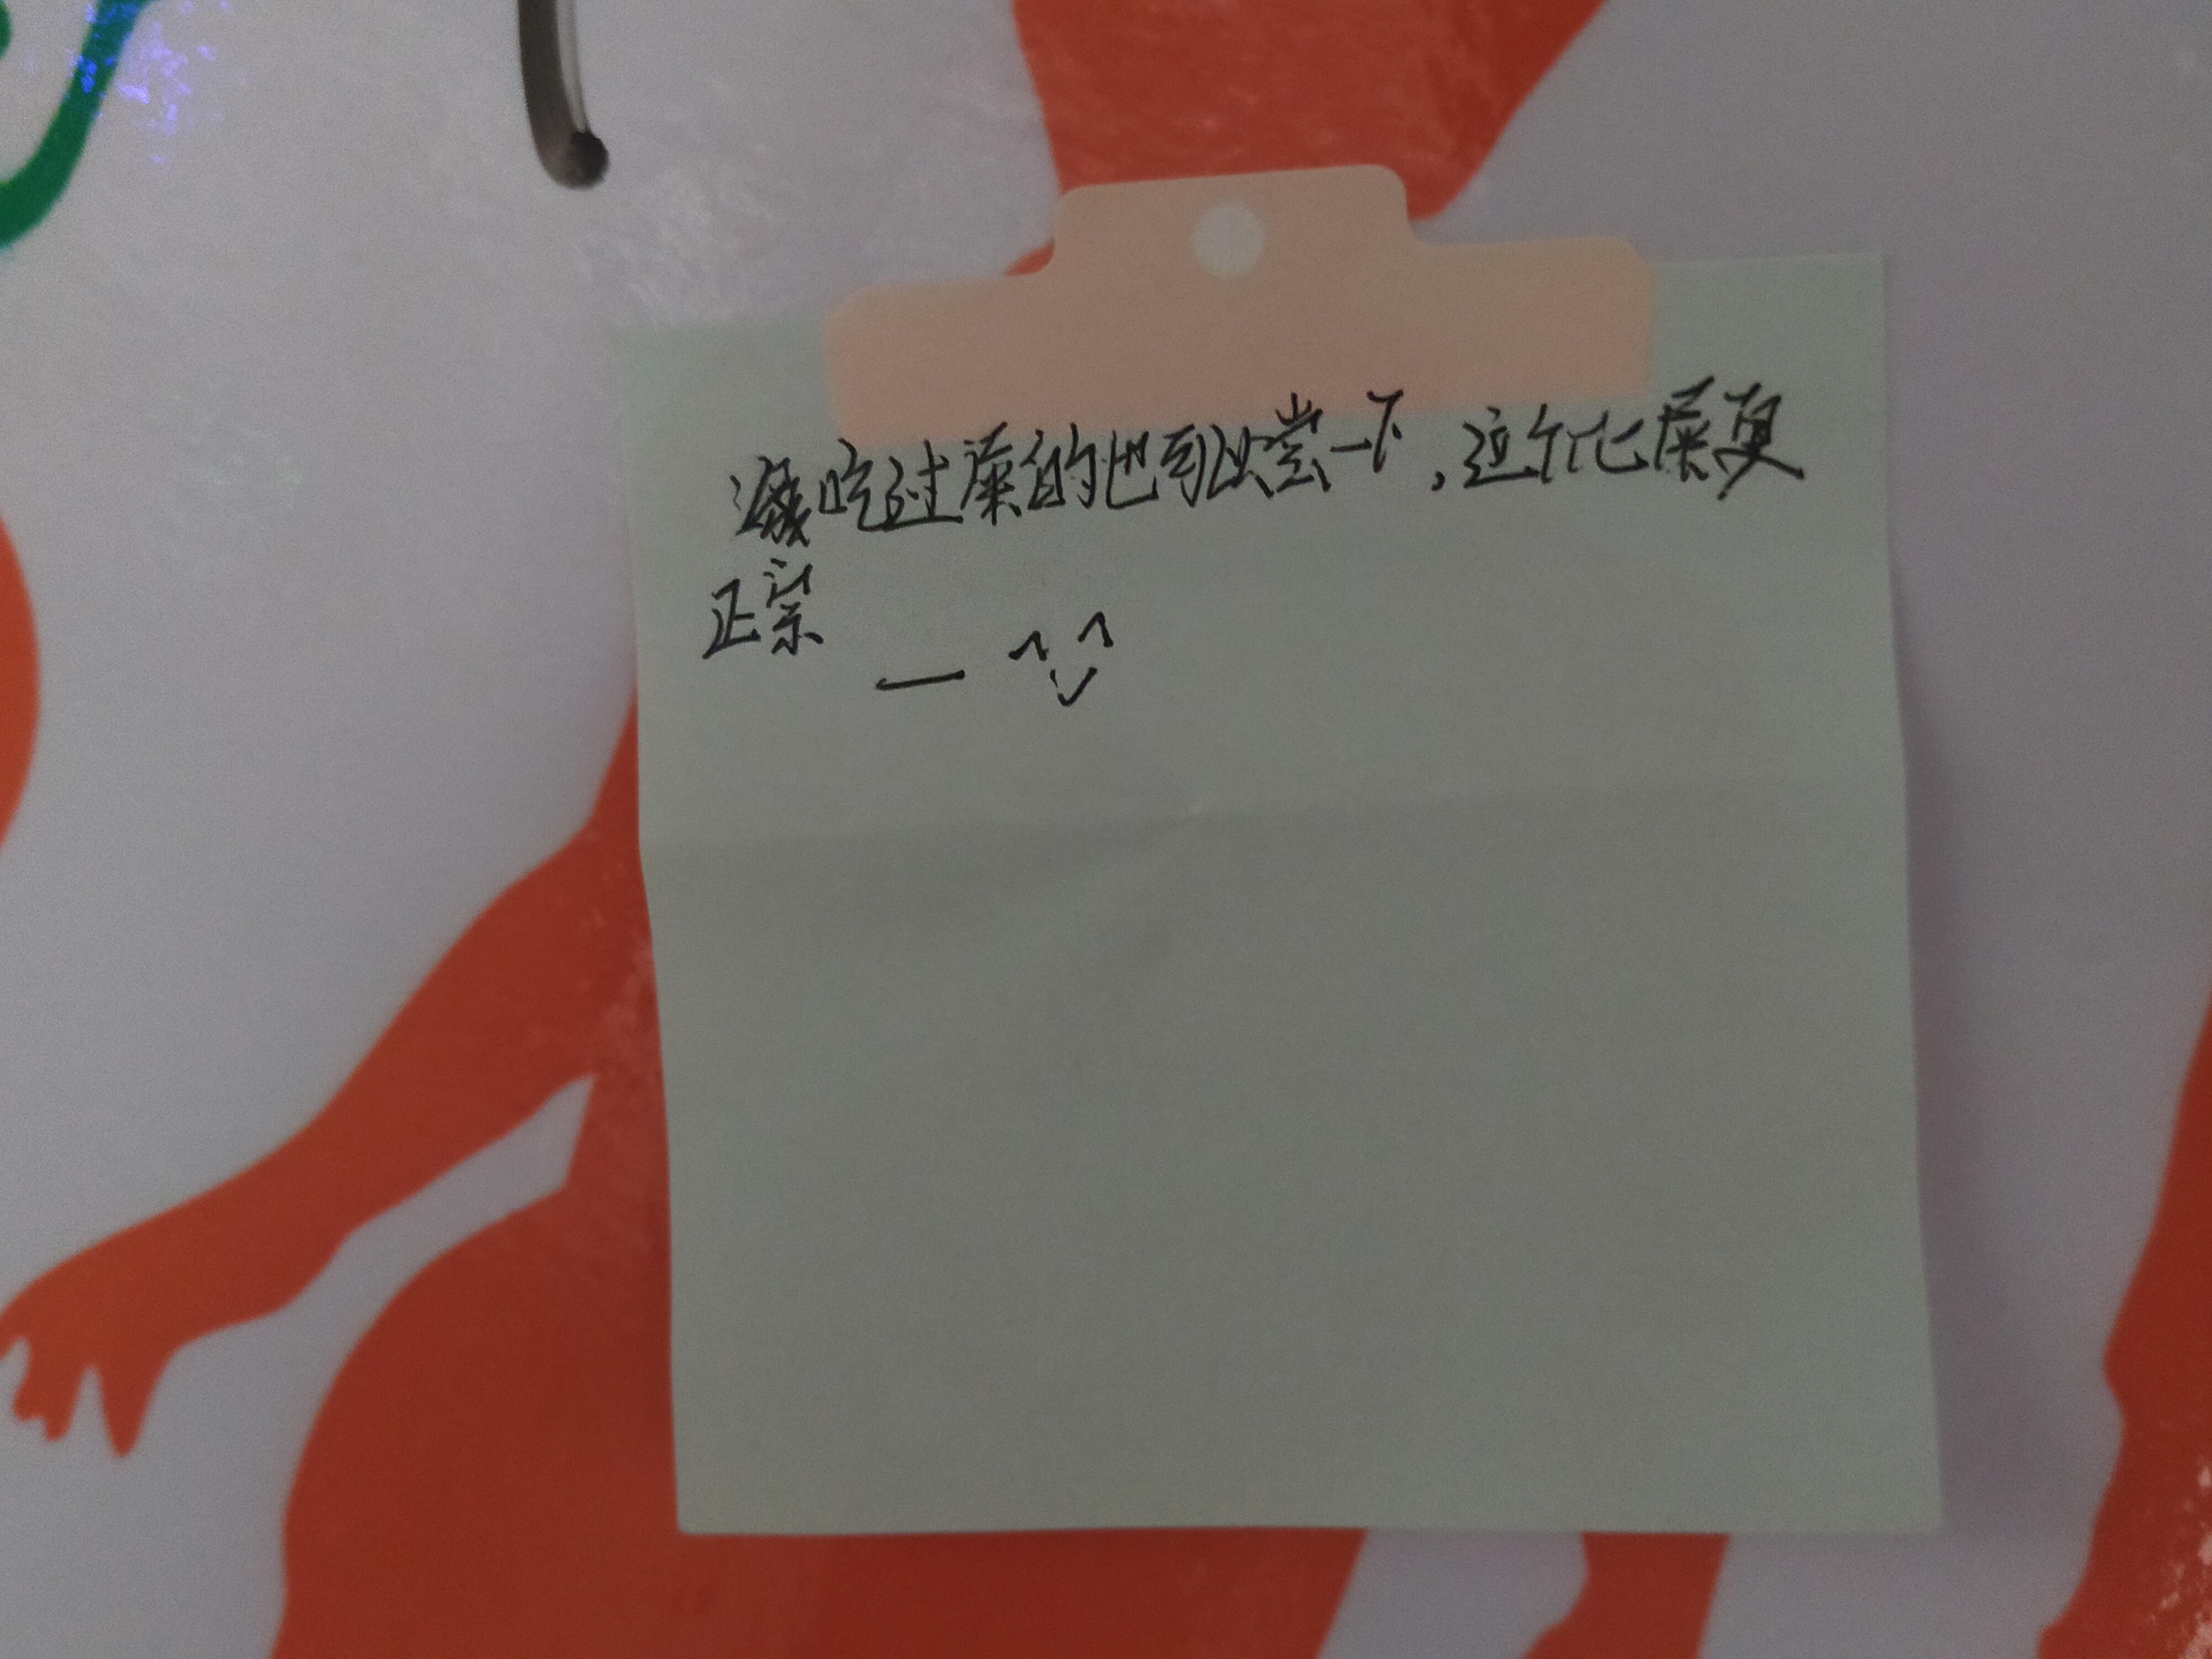 没吃过屎的也可以尝一下,这个比屎更
正宗 — ^ ^